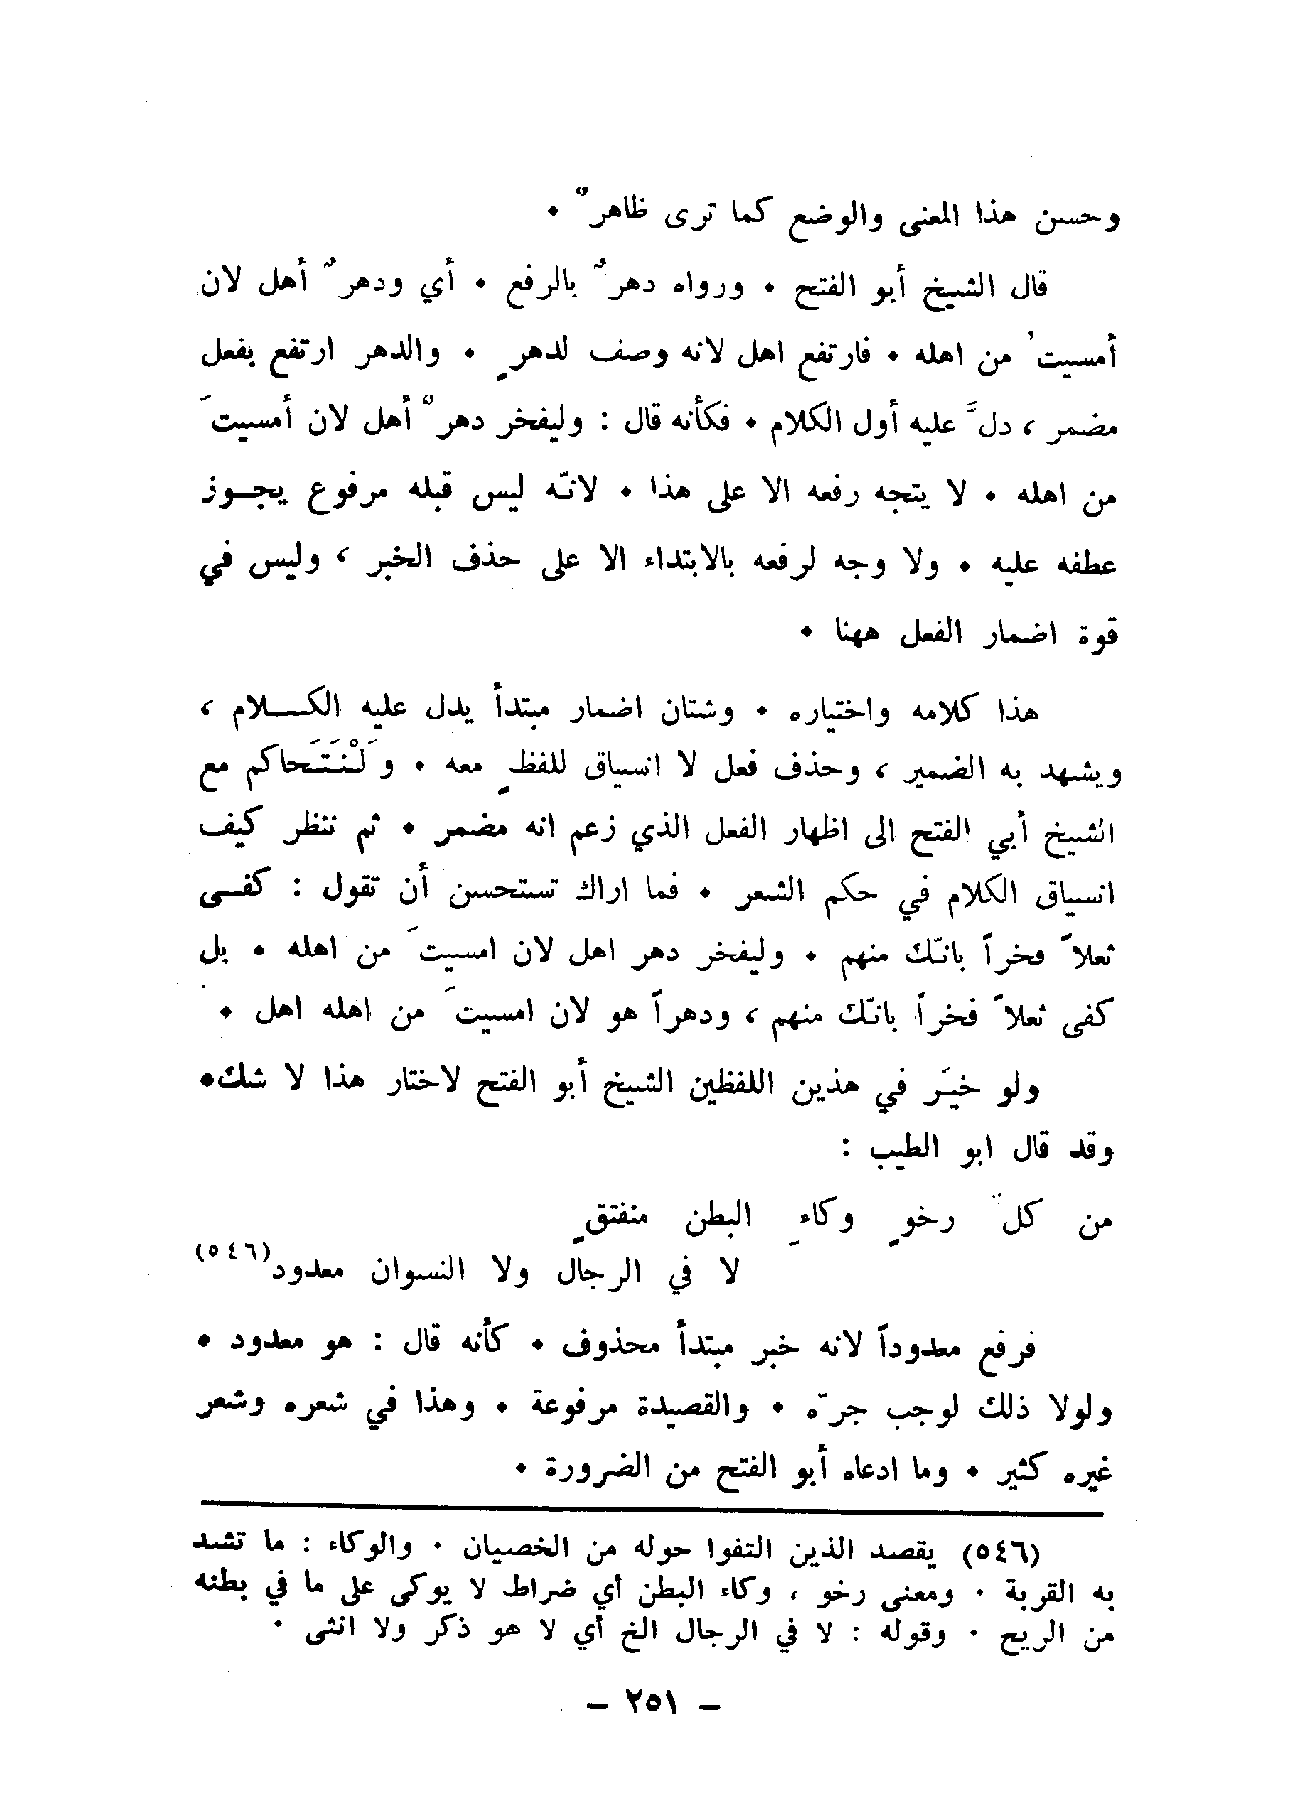 وحسن هذا المعنى والوضع كما ترى ظاهرٌ ٠
قال الشيخ أبو الفتح ٠ ورواه دهرٌ بالرفع ٠ أي ودهرٌ أهل لان
أمسيتُ من اهله ٠ فارتفع اهل لانه وصف لدهرٍ ٠ والدهر ارتفع بفعل
مضمر ، دلَّ عليه أول الكلام ٠ فكأنه قال : وليفخر دهرٌ أهل لان أمسيتَ
من اهله ٠ لا يتجه رفعه الا على هذا ٠ لانّه ليس قبله مرفوع يجـوز
عطفه عليه ٠ ولا وجه لرفعه بالابتداء الا على حذف الخبر ، وليس في
قوة اضمار الفعل ههنا ٠
هذا كلامه واختياره ٠ وشتان اضمار مبتدأ يدل عليه الكـــلام ،
ويشهد به الضمير ، وحذف فعل لا انسياق للفظٍ معه ٠ وَلْنَتَحاكم مع
الشيخ أبي الفتح الى اظهار الفعل الذي زعم انه مضمر ٠ ثم ننظر كيف
انسياق الكلام في حكم الشعر ٠ فما اراك تستحسن أن تقول : كفـى
ثعلاً فخراً بانّك منهم ٠ وليفخر دهر اهل لان امسيتَ من اهله ٠ بل
كفى ثعلاً فخراً بانّك منهم ، ودهراً هو لان امسيتَ من اهله اهل ٠
ولو خيّر في هذين اللفظين الشيخ أبو الفتح لاختار هذا لا شك٠
وقد قال ابو الطيب :
من كلّ رخوٍ وكاءِ البطن منفتقٍ
لا في الرجال ولا النسوان معدود(٥٤٦)
فرفع معدوداً لانه خبر مبتدأ محذوف ٠ كأنه قال : هو معدود ٠
ولولا ذلك لوجب جرّه ٠ والقصيدة مرفوعة ٠ وهذا في شعره وشعر
غيره كثير ٠ وما ادعاه أبو الفتح من الضرورة ٠
(٥٤٦) يقصد الذين التفوا حوله من الخصيان ٠ والوكاء : ما تشد
به القربة ٠ ومعنى رخو ، وكاء البطن أي ضراط لا يوكى على ما في بطنه
من الريح ٠ وقوله : لا في الرجال الخ أي لا هو ذكر ولا انثى ٠
– ٢٥١ –